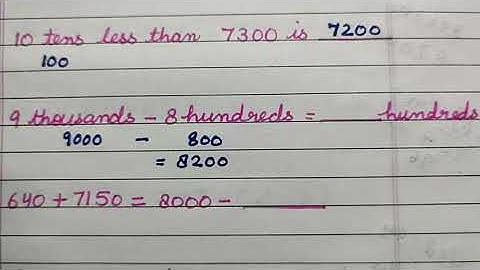 10 tens less than 7300 is 7200
100
9 thousands - 8 hundreds = ____ hundreds
9000 - 800
= 8200
640 + 7150 = 8000 - ____